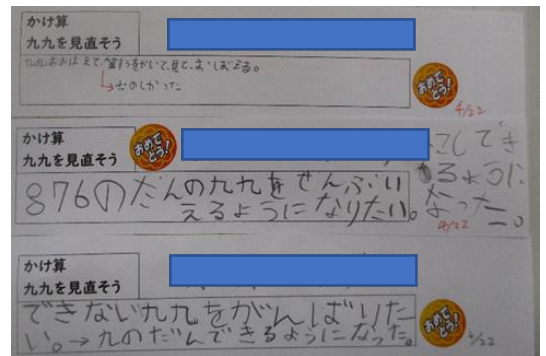 かけ算
九九を見直そう
九九おおぼえて、
たのしかった
おめでとう!
4/22
かけ算
九九を見直そう
おめでとう!
876のだんの九九をぜんぶい
えるようになりたい。
してでき
るように
なった
4/22
かけ算
九九を見直そう
できない九九をがんばりた
い。→九のだんできるようになった。
おめでとう!
4/22